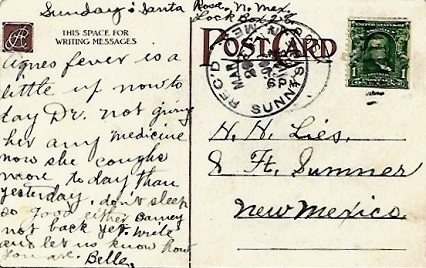 Sunday: Santa Rosa, N. Mex.
Lock Box 26
THIS SPACE FOR
WRITING MESSAGES
POSTCARD
REC'D
MAR
SUNNUS
1
Agnes fever is a
little up now to
day Dr. not giving
her any medicine
now she coughs
more to day than
yesterday, don't sleep
so good either Barney
not back yet. Write
and let us know how
you are. Belle.
H. H. Lies,
Ft. Sumner
New Mexico.